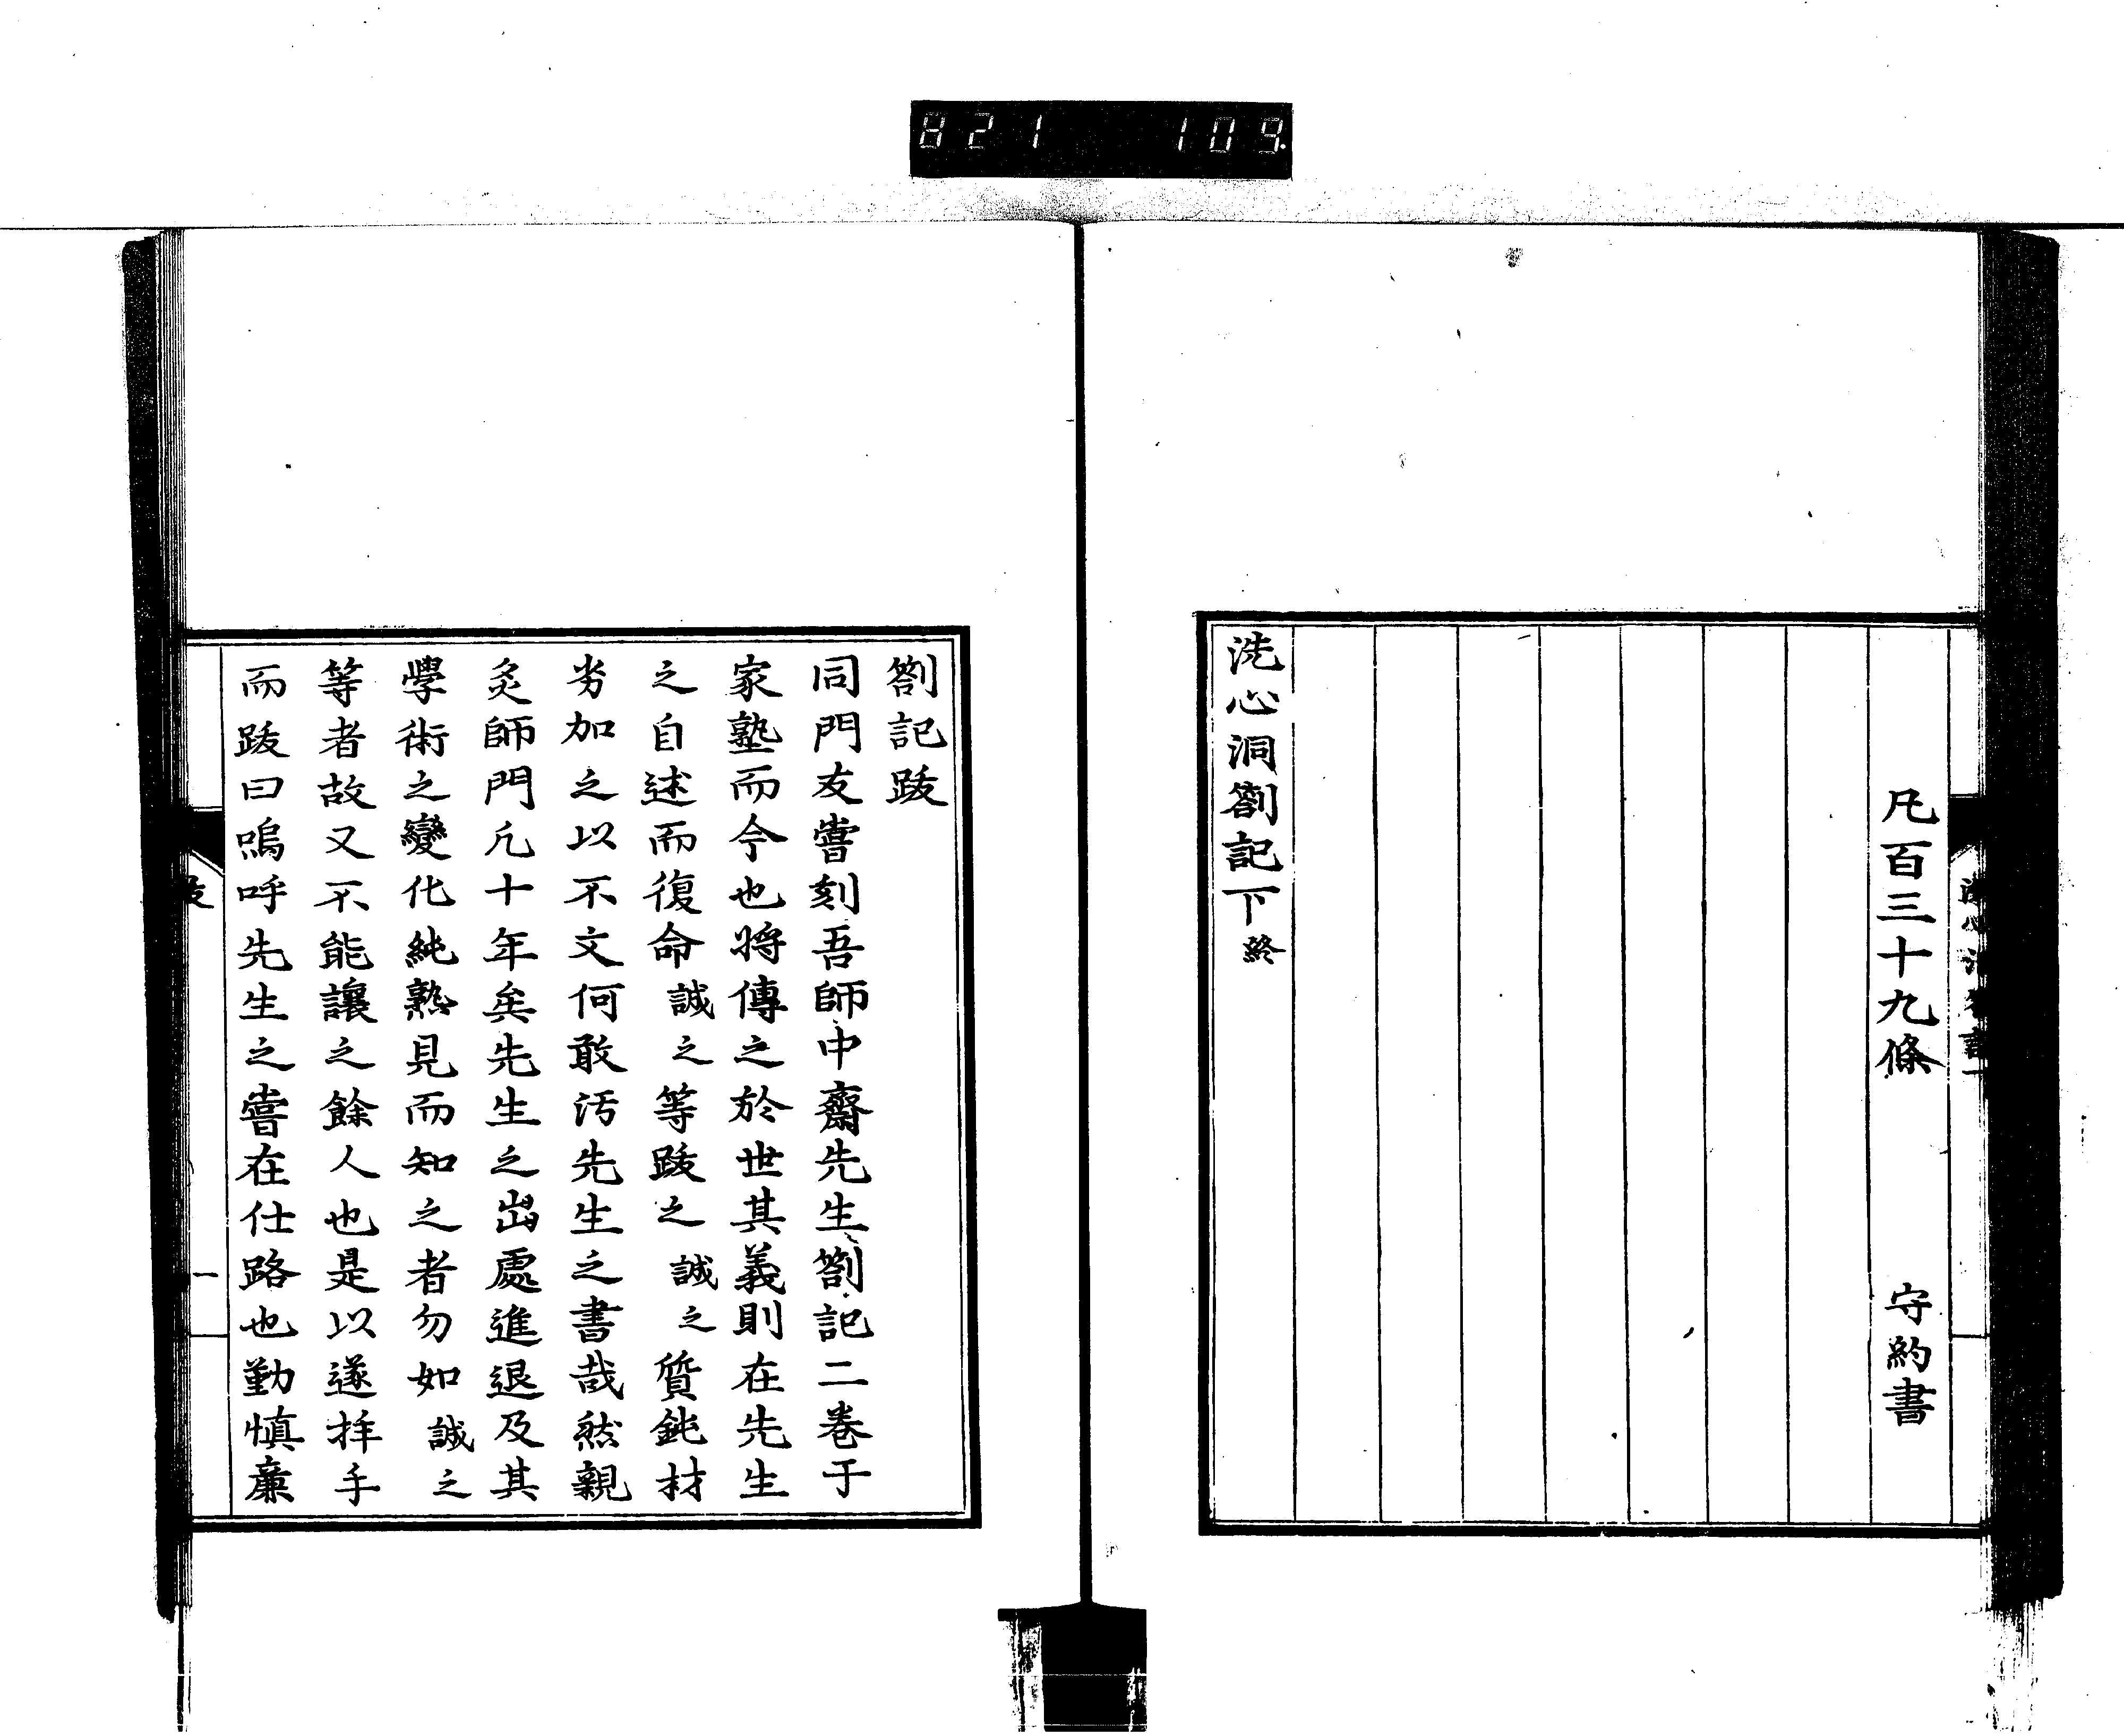 821 109.
凡百三十九條 守約書
洗心洞劄記下終
劄記跋
同門友嘗刻吾師中齋先生劄記二卷于
家塾而今也將傳之於世其義則在先生
之自述而復命誠之等跋之誠之質鈍材
劣加之以不文何敢汚先生之書哉然親
炙師門凢十年矣先生之出處進退及其
學術之變化純熟見而知之者勿如誠之
等者故又不能讓之餘人也是以遂拜手
而跋曰嗚呼先生之嘗在仕路也勤慎廉
一